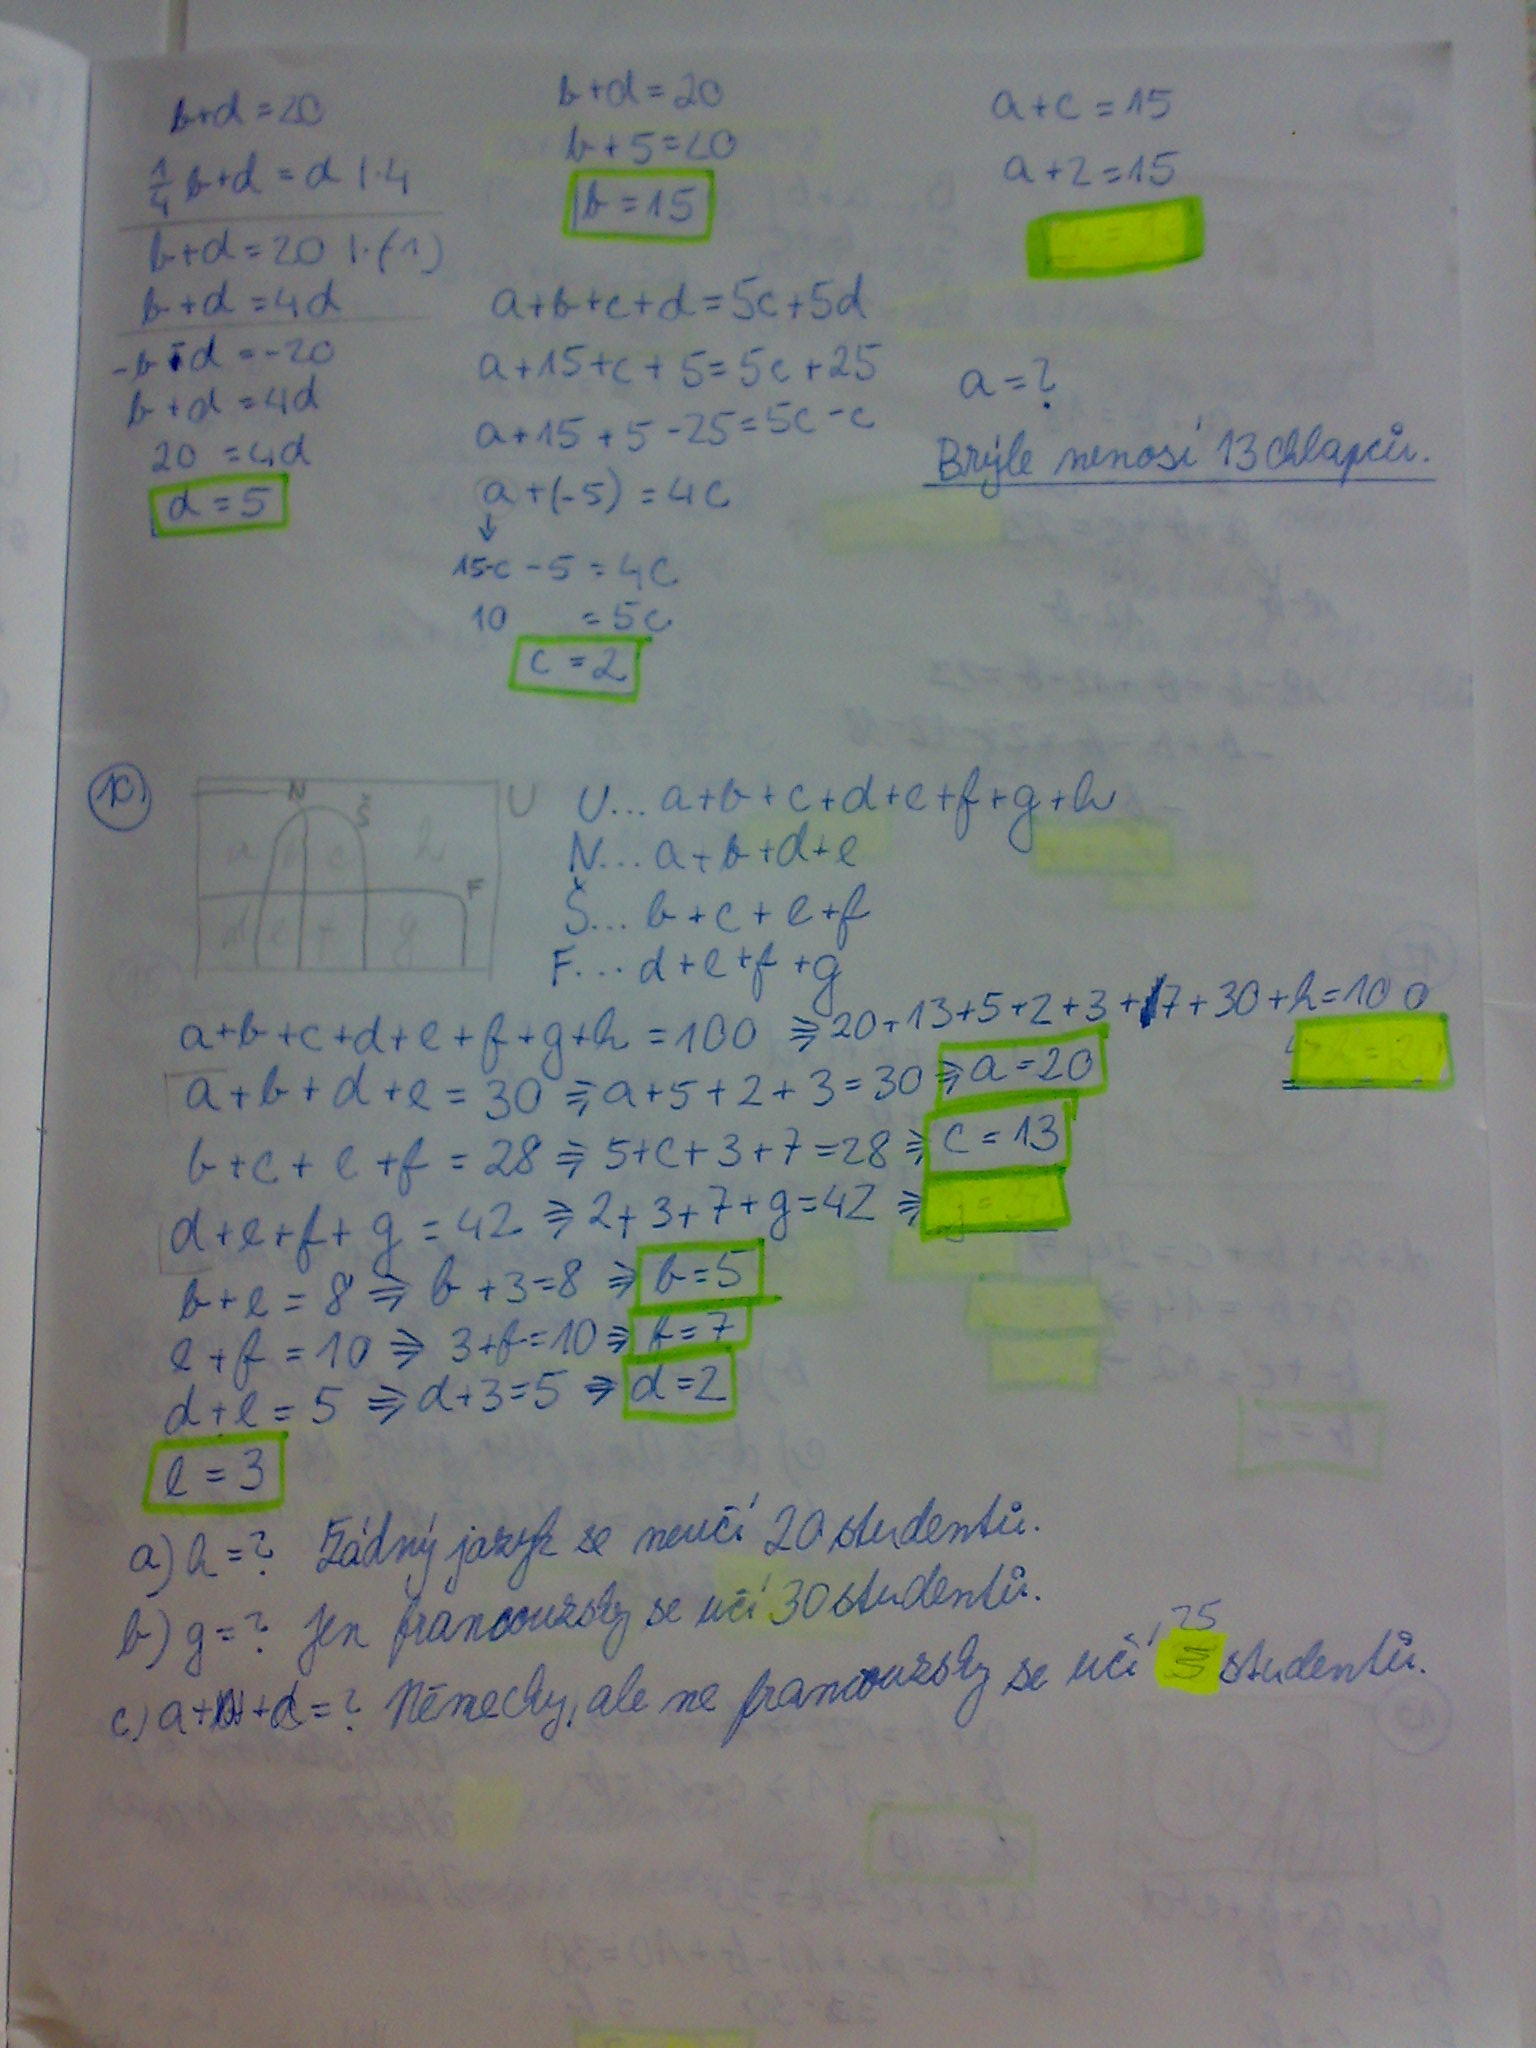 b+d=20
1/4 b+d=d |·4
b+d=20 |·(-1)
b+d=4d
-b-d=-20
b+d=4d
20=4d
d=5
b+d=20
b+5=20
b=15
a+b+c+d=5c+5d
a+15+c+5=5c+25
a+15+5-25=5c-c
a+(-5)=4c
↓
15-c-5=4c
10=5c
c=2
a+c=15
a+2=15
a=?
Brýle nenosí 13 chlapců.
10)
N
Š
U
a b c h
F
d e f g
U... a+b+c+d+e+f+g+h
N... a+b+d+e
Š... b+c+e+f
F... d+e+f+g
a+b+c+d+e+f+g+h=100 ⇒ 20+13+5+2+3+7+30+h=100
h=20
a+b+d+e=30 ⇒ a+5+2+3=30 ⇒ a=20
b+c+e+f=28 ⇒ 5+c+3+7=28 ⇒ c=13
d+e+f+g=42 ⇒ 2+3+7+g=42 ⇒ g=30
b+e=8 ⇒ b+3=8 ⇒ b=5
e+f=10 ⇒ 3+f=10 ⇒ f=7
d+e=5 ⇒ d+3=5 ⇒ d=2
e=3
a) h=? Žádný jazyk se neučí 20 studentů.
b) g=? Jen francouzsky se učí 30 studentů.
25
c) a+b+d=? Německy, ale ne francouzsky se učí studentů.